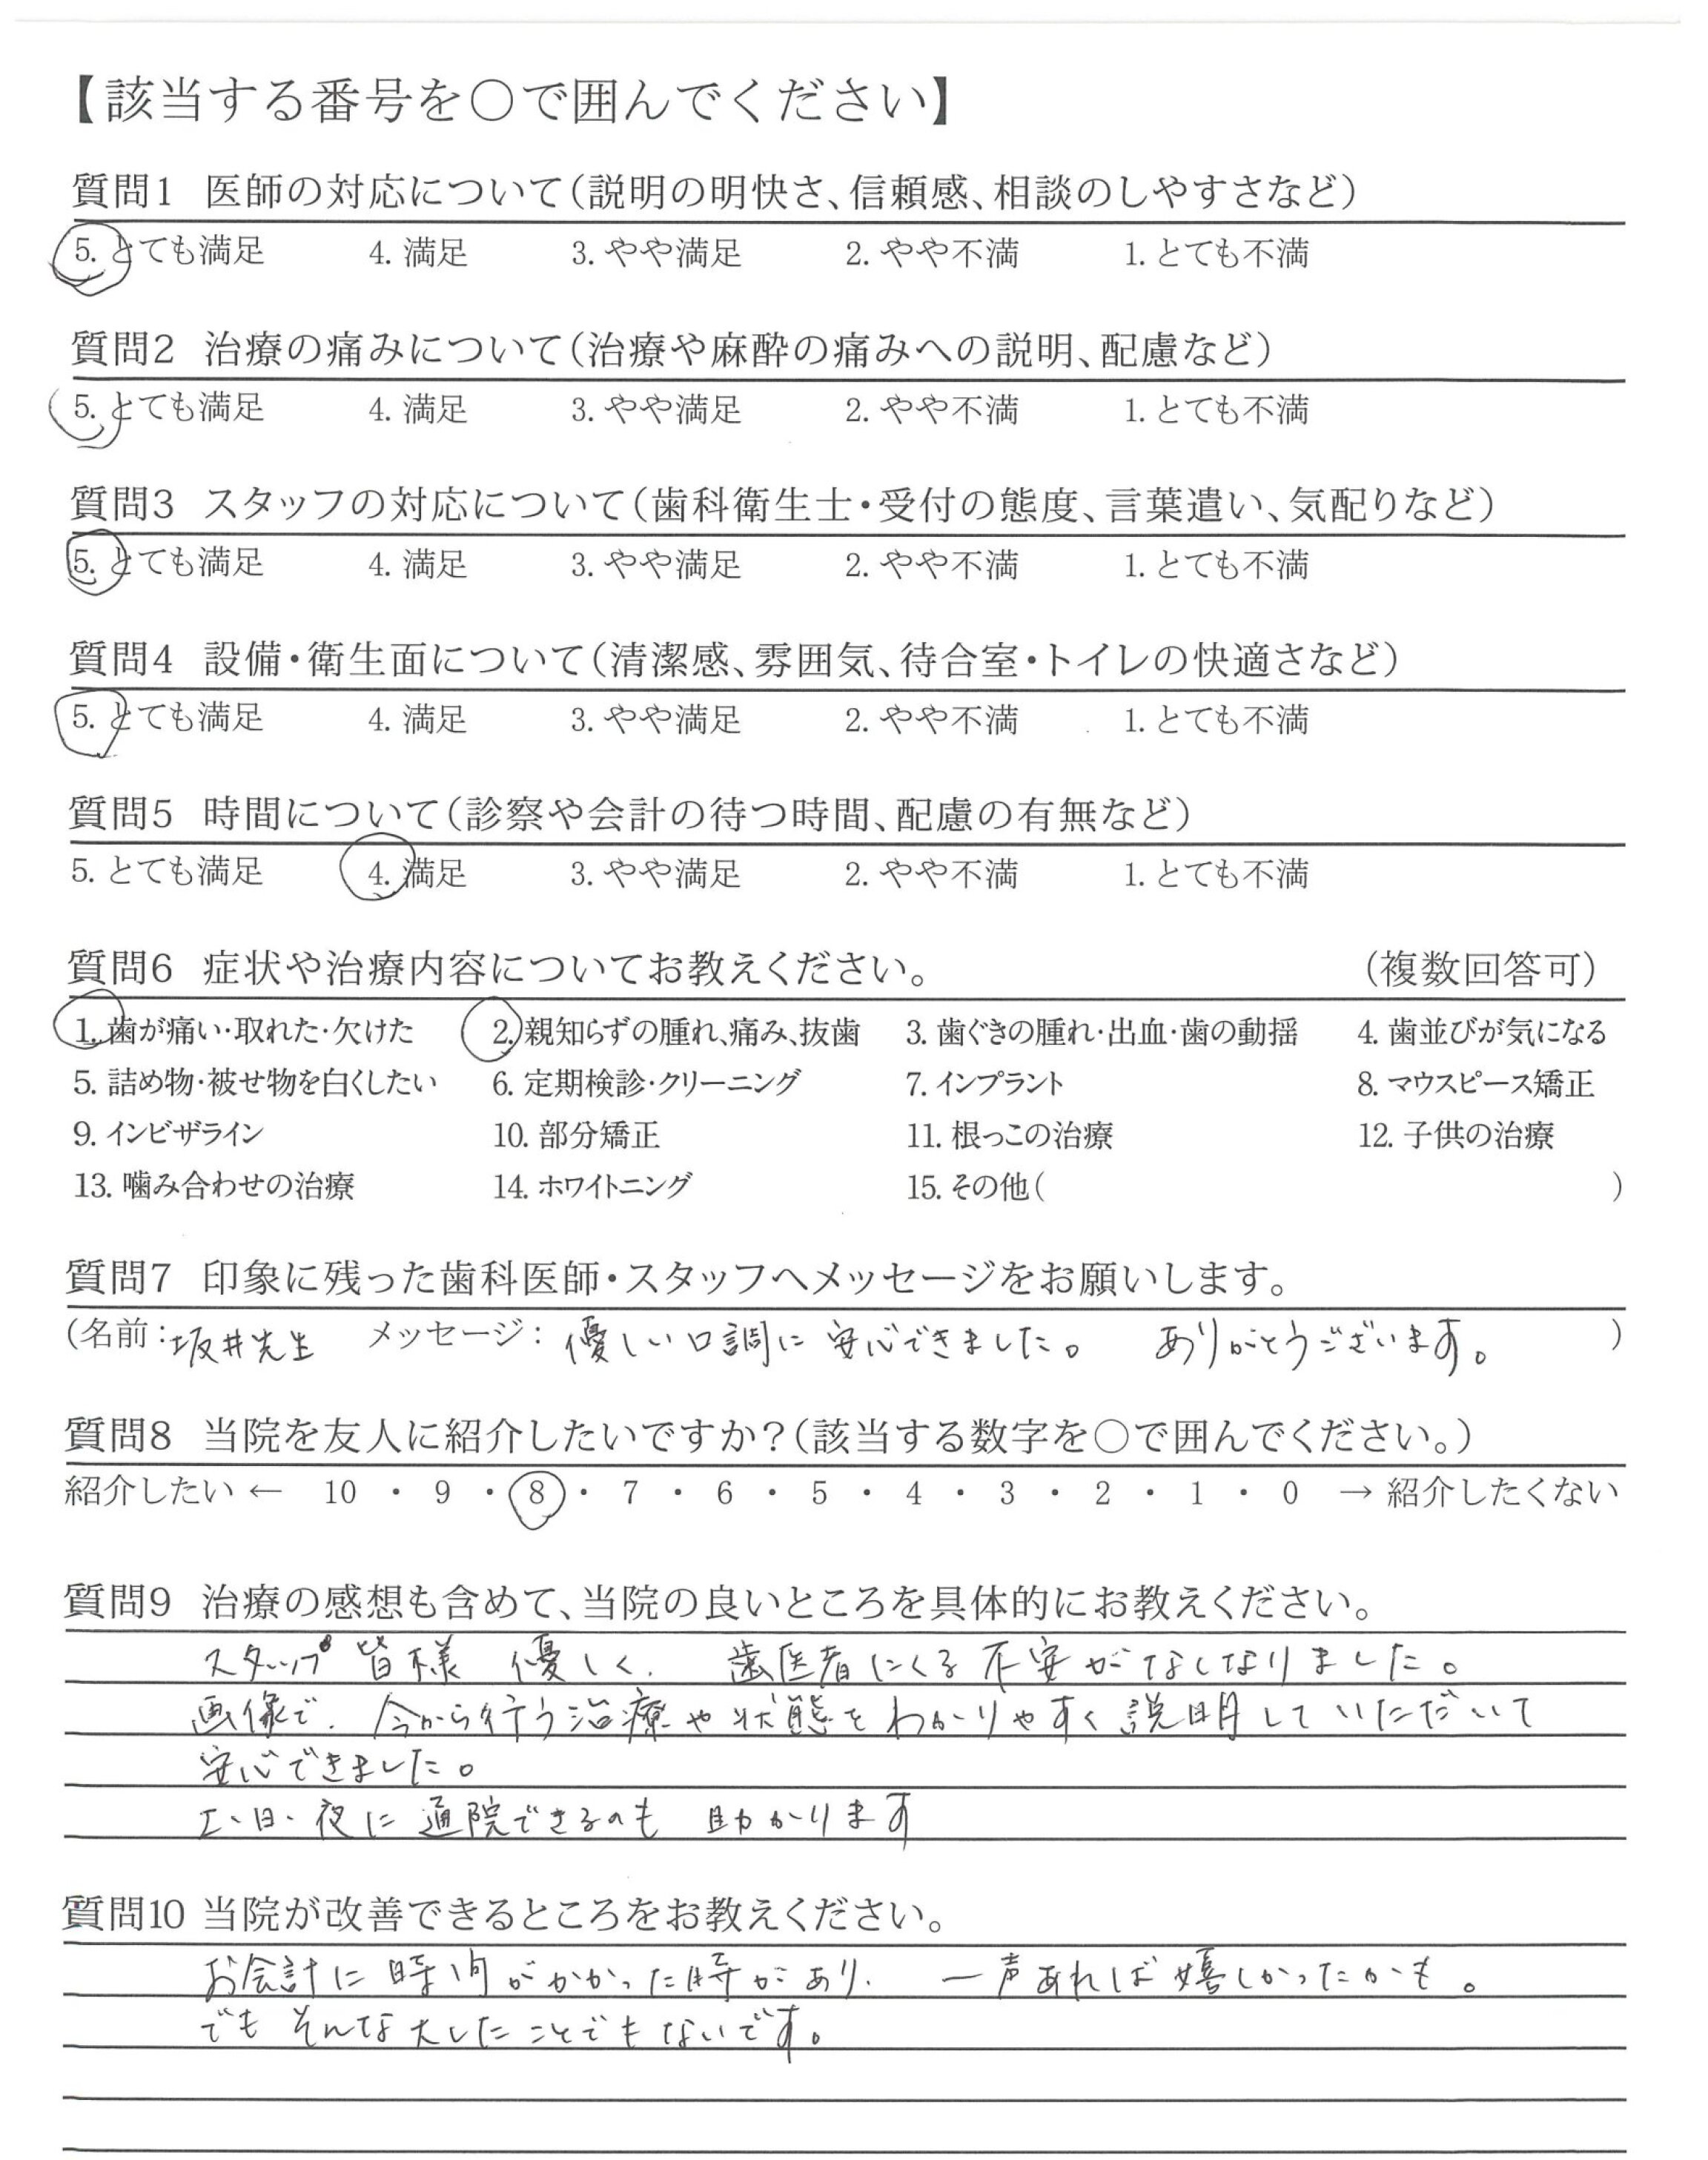 【該当する番号を○で囲んでください】
質問1 医師の対応について(説明の明快さ、信頼感、相談のしやすさなど)
5. とても満足 4. 満足 3. やや満足 2. やや不満 1. とても不満
質問2 治療の痛みについて(治療や麻酔の痛みへの説明、配慮など)
5. とても満足 4. 満足 3. やや満足 2. やや不満 1. とても不満
質問3 スタッフの対応について(歯科衛生士・受付の態度、言葉遣い、気配りなど)
5. とても満足 4. 満足 3. やや満足 2. やや不満 1. とても不満
質問4 設備・衛生面について(清潔感、雰囲気、待合室・トイレの快適さなど)
5. とても満足 4. 満足 3. やや満足 2. やや不満 1. とても不満
質問5 時間について(診察や会計の待つ時間、配慮の有無など)
5. とても満足 4. 満足 3. やや満足 2. やや不満 1. とても不満
質問6 症状や治療内容についてお教えください。 (複数回答可)
1. 歯が痛い・取れた・欠けた 2. 親知らずの腫れ、痛み、抜歯 3. 歯ぐきの腫れ・出血・歯の動揺 4. 歯並びが気になる
5. 詰め物・被せ物を白くしたい 6. 定期検診・クリーニング 7. インプラント 8. マウスピース矯正
9. インビザライン 10. 部分矯正 11. 根っこの治療 12. 子供の治療
13. 噛み合わせの治療 14. ホワイトニング 15. その他( )
質問7 印象に残った歯科医師・スタッフへメッセージをお願いします。
(名前:坂井先生 メッセージ: 優しい口調に安心できました。 ありがとうございます。 )
質問8 当院を友人に紹介したいですか?(該当する数字を○で囲んでください。)
紹介したい ← 10 ・ 9 ・ 8 ・ 7 ・ 6 ・ 5 ・ 4 ・ 3 ・ 2 ・ 1 ・ 0 → 紹介したくない
質問9 治療の感想も含めて、当院の良いところを具体的にお教えください。
スタッフ皆様 優しく、 歯医者にくる不安がなくなりました。
画像で、今から行う治療や状態をわかりやすく説明していただいて
安心できました。
土・日・夜に通院できるのも 助かります
質問10 当院が改善できるところをお教えください。
お会計に時間がかかった時があり、 一声あれば嬉しかったかも。
でもそんな大したことでもないです。